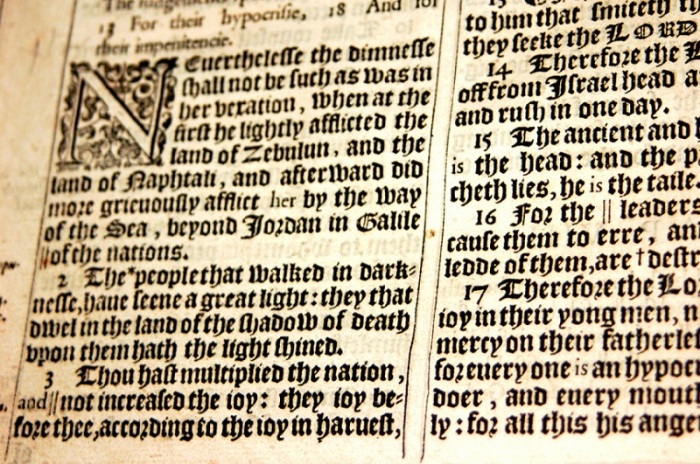 13 For their hypocrisie, 18 And for
their impenitencie.
NEuerthelesse the dimnesse
shall not be such as was in
her vexation, when at the
first he lightly afflicted the
land of Zebulun, and the
land of Naphtali, and afterward did
more grieuously afflict her by the way
of the Sea, beyond Jordan in Galile
||of the nations.
2 The*people that walked in dark=
nesse, haue seene a great light: they that
dwel in the land of the shadow of death
vpon them hath the light shined.
3 Thou hast multiplied the nation,
and||not increased the ioy: they ioy be=
fore thee, according to the ioy in haruest,
to him that smiteth
they seeke the LORD
14 Therefore the
off from Israel head
and rush in one day.
15 The ancient and
is the head: and the
cheth lies, he is the taile.
16 For the || leaders
cause them to erre,
ledde of them, are†destr
17 Therefore the Lo
ioy in their yong men, n
mercy on their fatherles
for euery one is an hypoc
doer, and euery mout
ly: for all this his ange